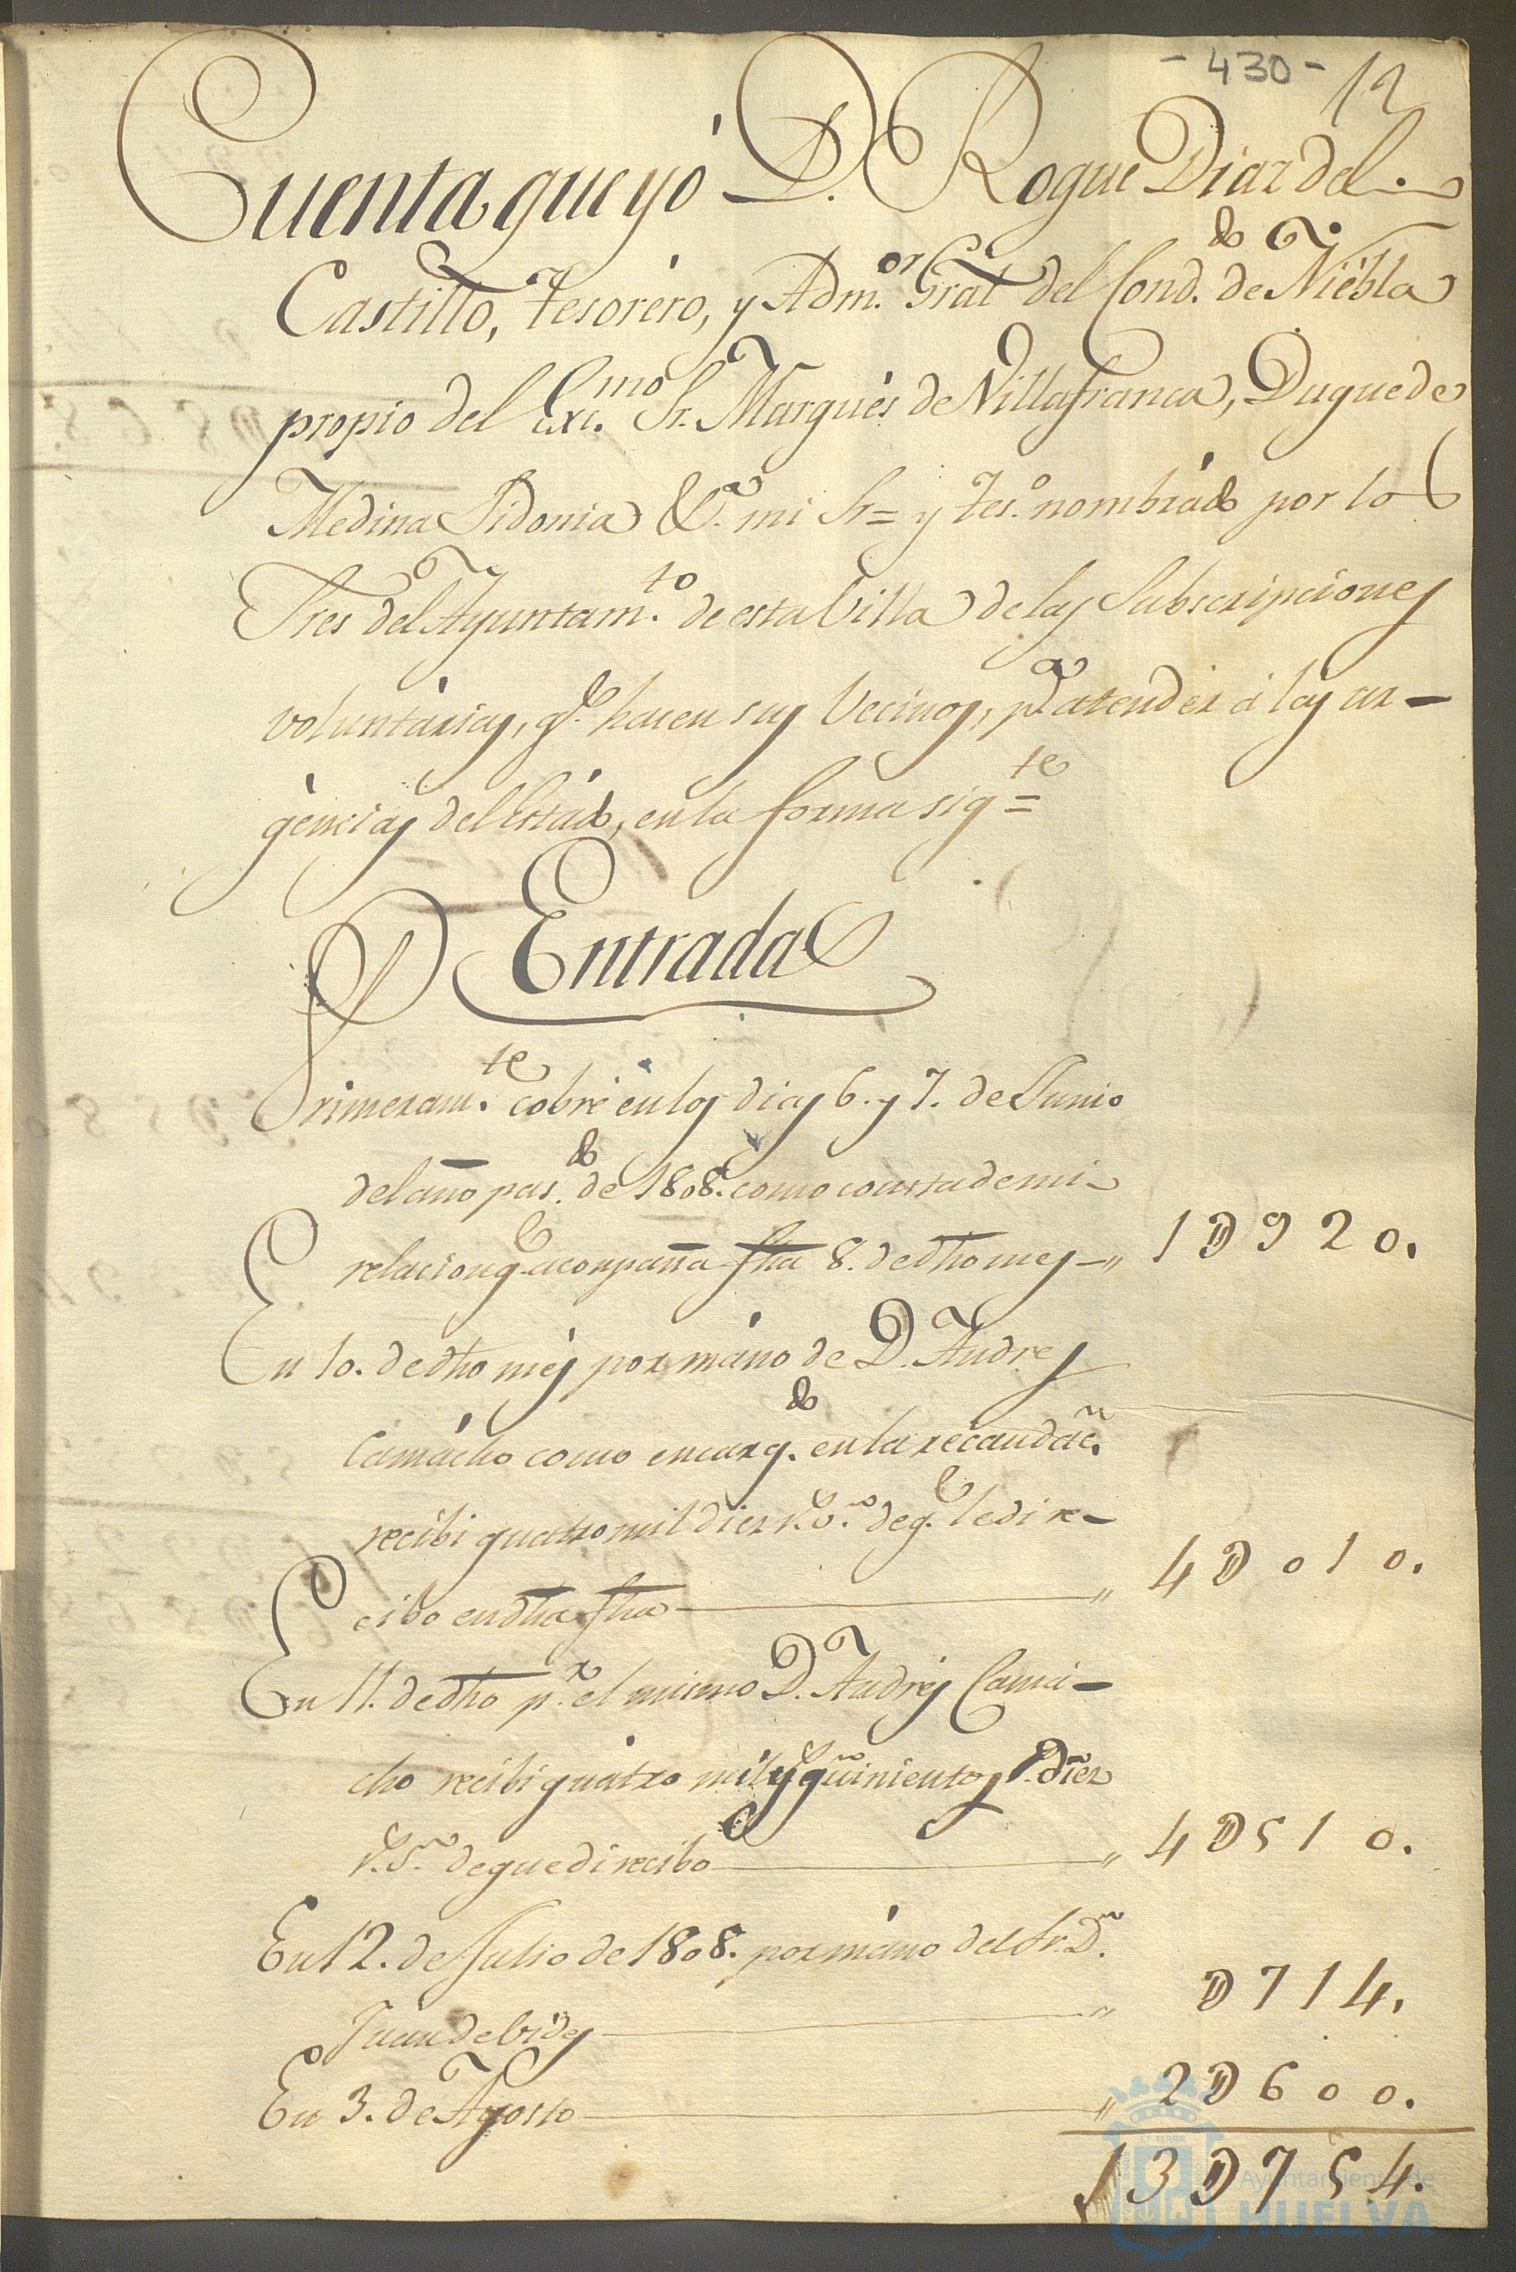 - 430 - 12
Cuenta que yó D. Roque Diaz del
Castillo, Tesorero, y Adm.or Gral del Cond.do de Niebla
propio del Exc.mo Sr. Marqués de Villafranca, Duque de
Medina Sidonia &.a mi Sr= y Tes.o nombrado por lo
Sres del Ayuntam.to de esta Villa de las Subscripciones
voluntarias, q.e hacen sus Vecinos, p.a atender á las ur-
gencias del Estado, en la forma sig.te=
Entrada
Primeram.te cobré en los dias 6. y 7. de Junio
del año pas.do de 1808. como consta de mi
relacion q.e acompaña fha 8. de dho mes " 1D920.
En 10. de dho mes por máno de D. Andres
Camácho como encarg.do en la recaudac.n
recibi quatro mil diez r.s v.n de q.e le di re-
cibo en dha fha " 4D010.
En 11. de dho p.r el mismo D. Andrés Camá-
cho recibi quátro mil y quinientos diez
r.s v.n de que di recibo " 4D510.
En 12. de Julio de 1808. por máno del Sr. D.n
Juan de Vides " D714.
En 3. de Agosto " 2D600.
13D754.
Ayuntamiento de
HUELVA